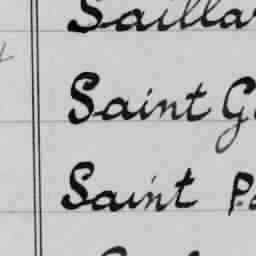 Sailla
Saint G
Saint P